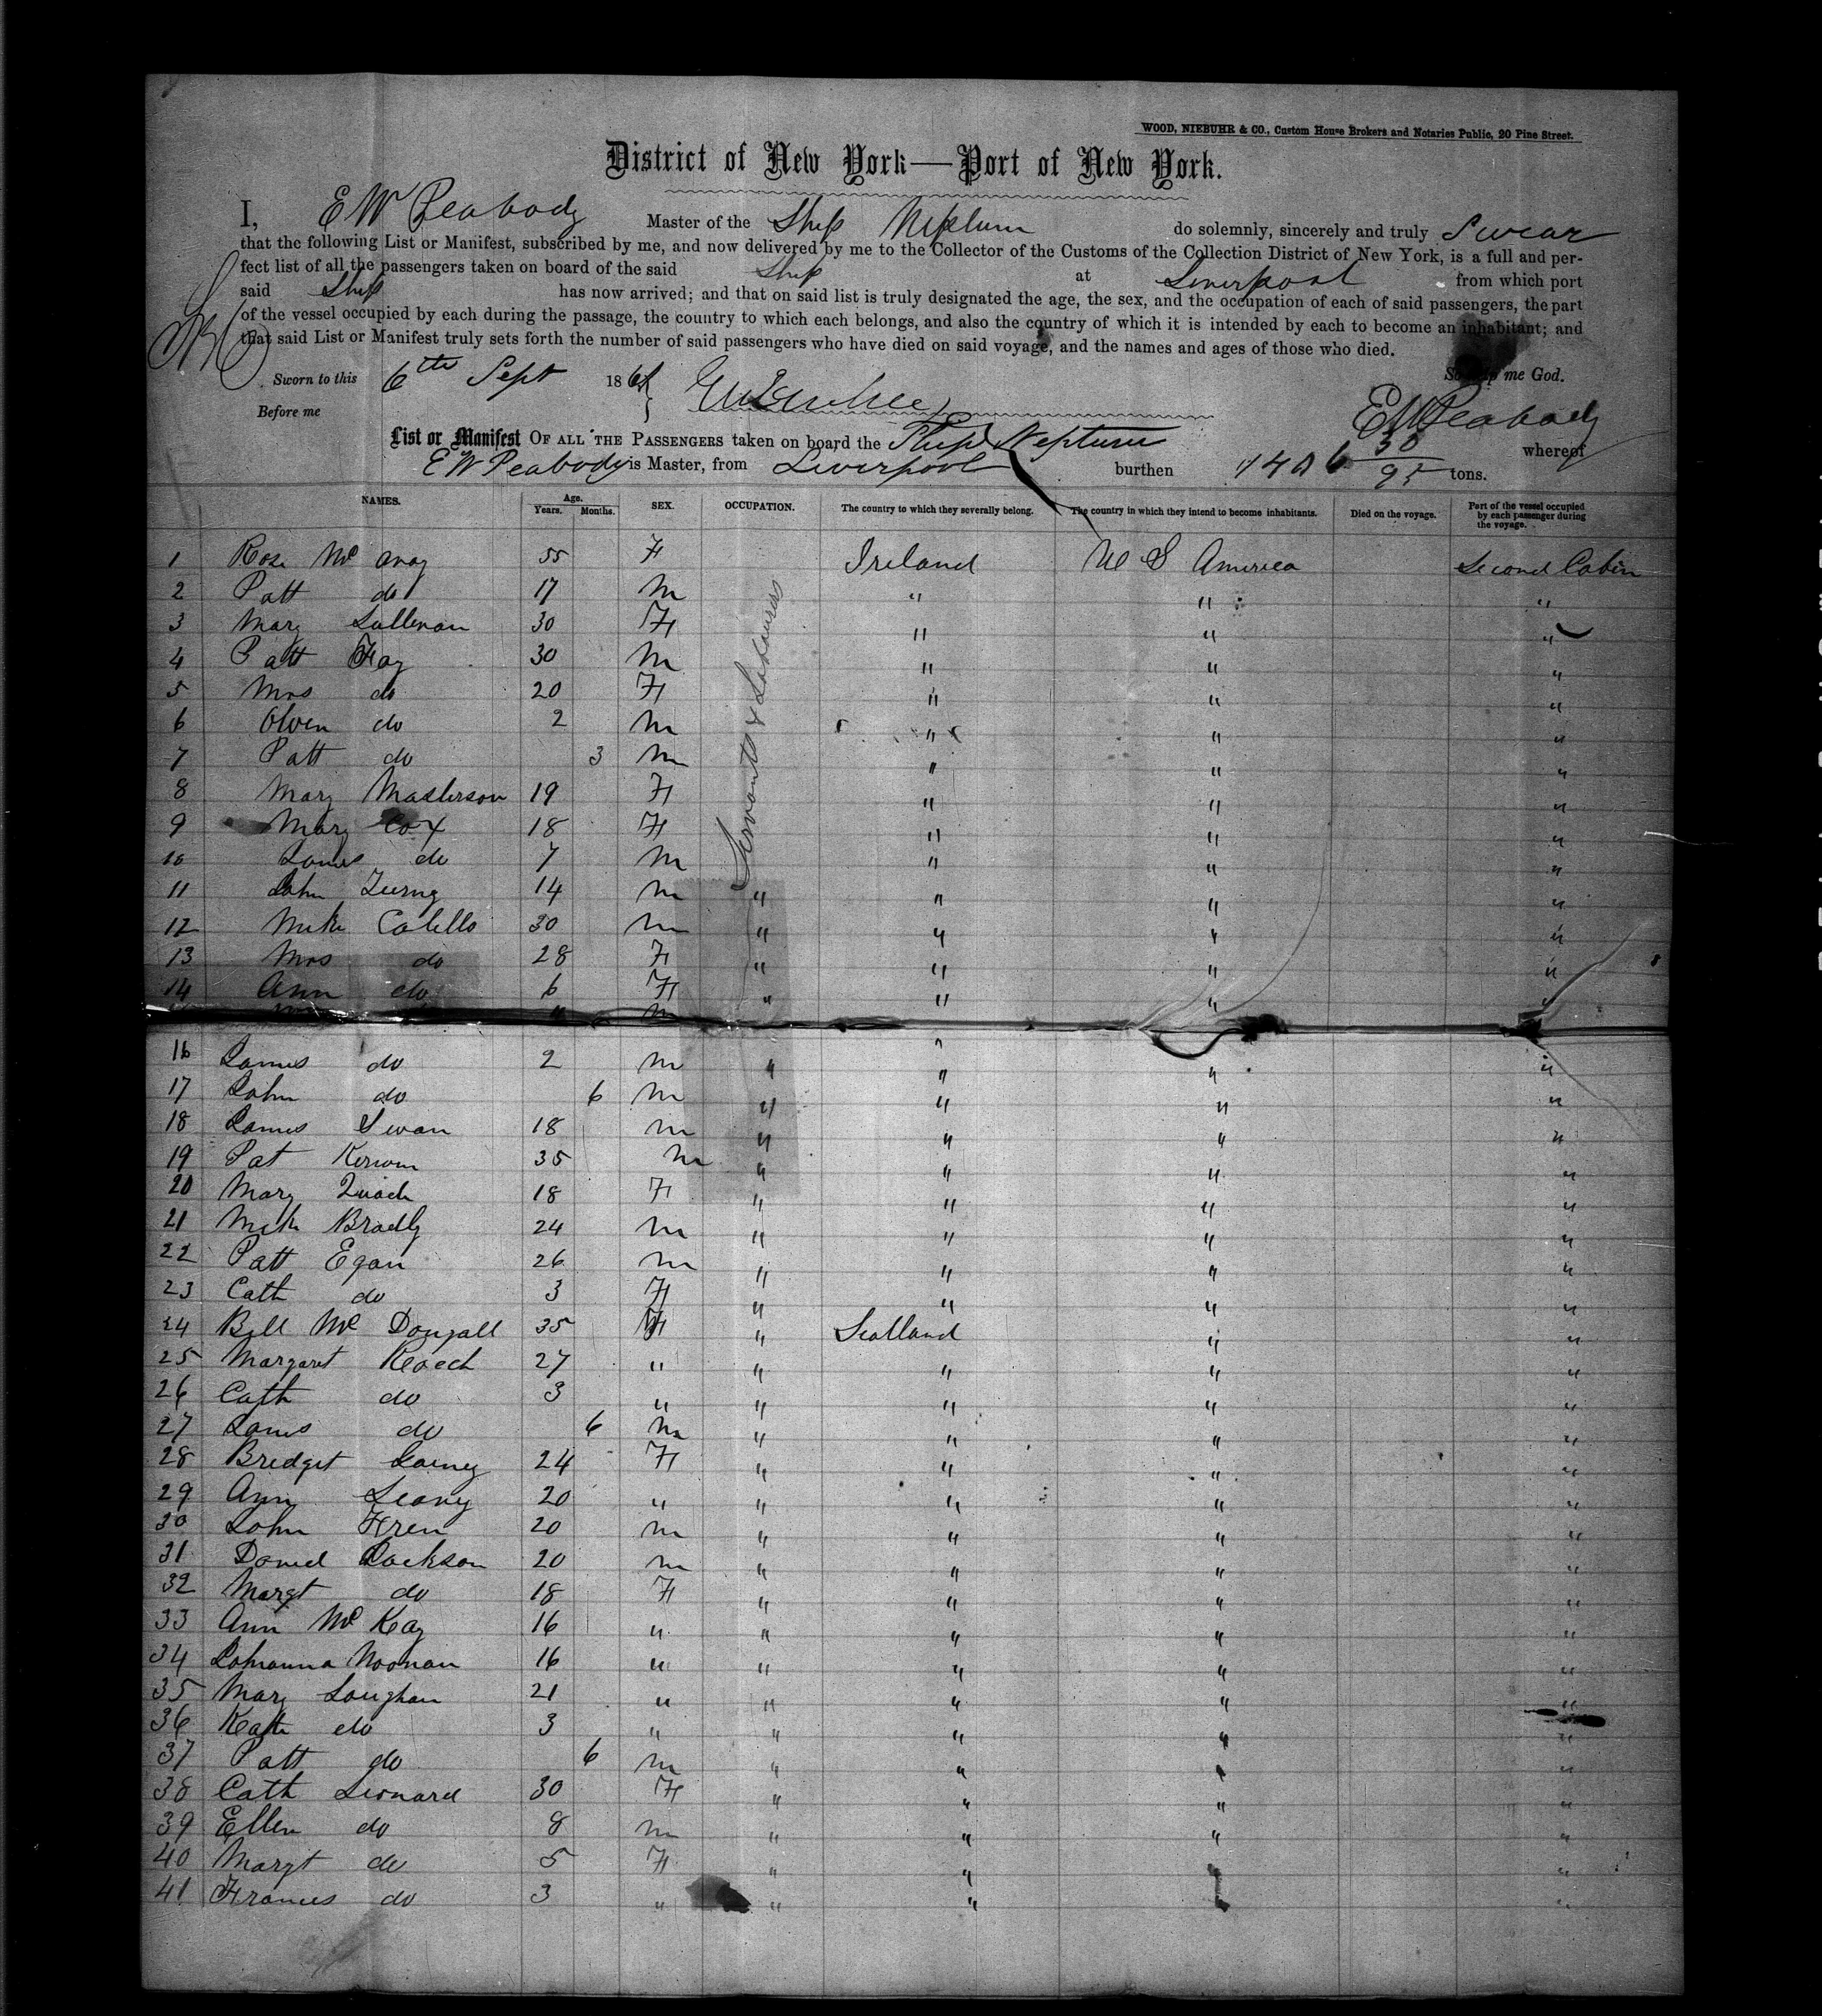 WOOD, NIEBUHR & CO., Custom House Brokers and Notaries Public, 20 Pine Street.
District of New York—Port of New York.
I, E W Peabody Master of the Ship Neptune do solemnly, sincerely and truly Swear
that the following List or Manifest, subscribed by me, and now delivered by me to the Collector of the Customs of the Collection District of New York, is a full and per-
fect list of all the passengers taken on board of the said Ship at Liverpool from which port
said Ship has now arrived; and that on said list is truly designated the age, the sex, and the occupation of each of said passengers, the part
of the vessel occupied by each during the passage, the country to which each belongs, and also the country of which it is intended by each to become an inhabitant; and
that said List or Manifest truly sets forth the number of said passengers who have died on said voyage, and the names and ages of those who died.
Sworn to this 6th Sept 186 So help me God.
Before me E W Peabody
List or Manifest OF ALL THE PASSENGERS taken on board the Ship Neptune whereof
E W Peabody is Master, from Liverpool burthen tons.
NAMES. Age. Years. Months. SEX. OCCUPATION. The country to which they severally belong. The country in which they intend to become inhabitants. Died on the voyage. Part of the vessel occupied by each passenger during the voyage.
Servants & Labourers
1 Rose Mc 55 F Ireland U S America Second Cabin
2 Patt do 17 M " " "
3 Mary Sullivan 30 F " " "
4 Patt Fay 30 M " " "
5 Mrs do 20 F " " "
6 Owen do 2 M " " "
7 Patt do 3 M " " "
8 Mary Masterson 19 F " " "
9 Mary Cox 18 F " " "
10 James do 7 M " " "
11 John 14 M " " " "
12 Mike Colello 30 M " " " "
13 Mrs do 28 F " " " "
14 Ann do 6 F " " " "
M
16 James do 2 M " " " "
17 John do 6 M " " " "
18 James Swan 18 M " " " "
19 Pat Kerwin 35 M " " " "
20 Mary 18 F " " " "
21 Mik Bradly 24 M " " " "
22 Patt Egan 26 M " " " "
23 Cath do 3 F " " " "
24 Bell Mc Dougall 35 F " Scotland " "
25 Margaret Roach 27 " " " " "
26 Cath do 3 " " " " "
27 James do 6 M " " " "
28 Bridget 24 F " " " "
29 Ann Leavy 20 " " " " "
30 John Fren 20 M " " " "
31 Daniel Jackson 20 M " " " "
32 Margt do 18 F " " " "
33 Ann Mc Kay 16 " " " " "
34 Johanna Noonan 16 " " " " "
35 Mary Loughan 21 " " " " "
36 Kate do 3 " " " " "
37 Patt do 6 M " " " "
38 Cath Leonard 30 F " " " "
39 Ellen do 8 M " " " "
40 Margt do 5 F " " "
41 Frances do 3 " " " "